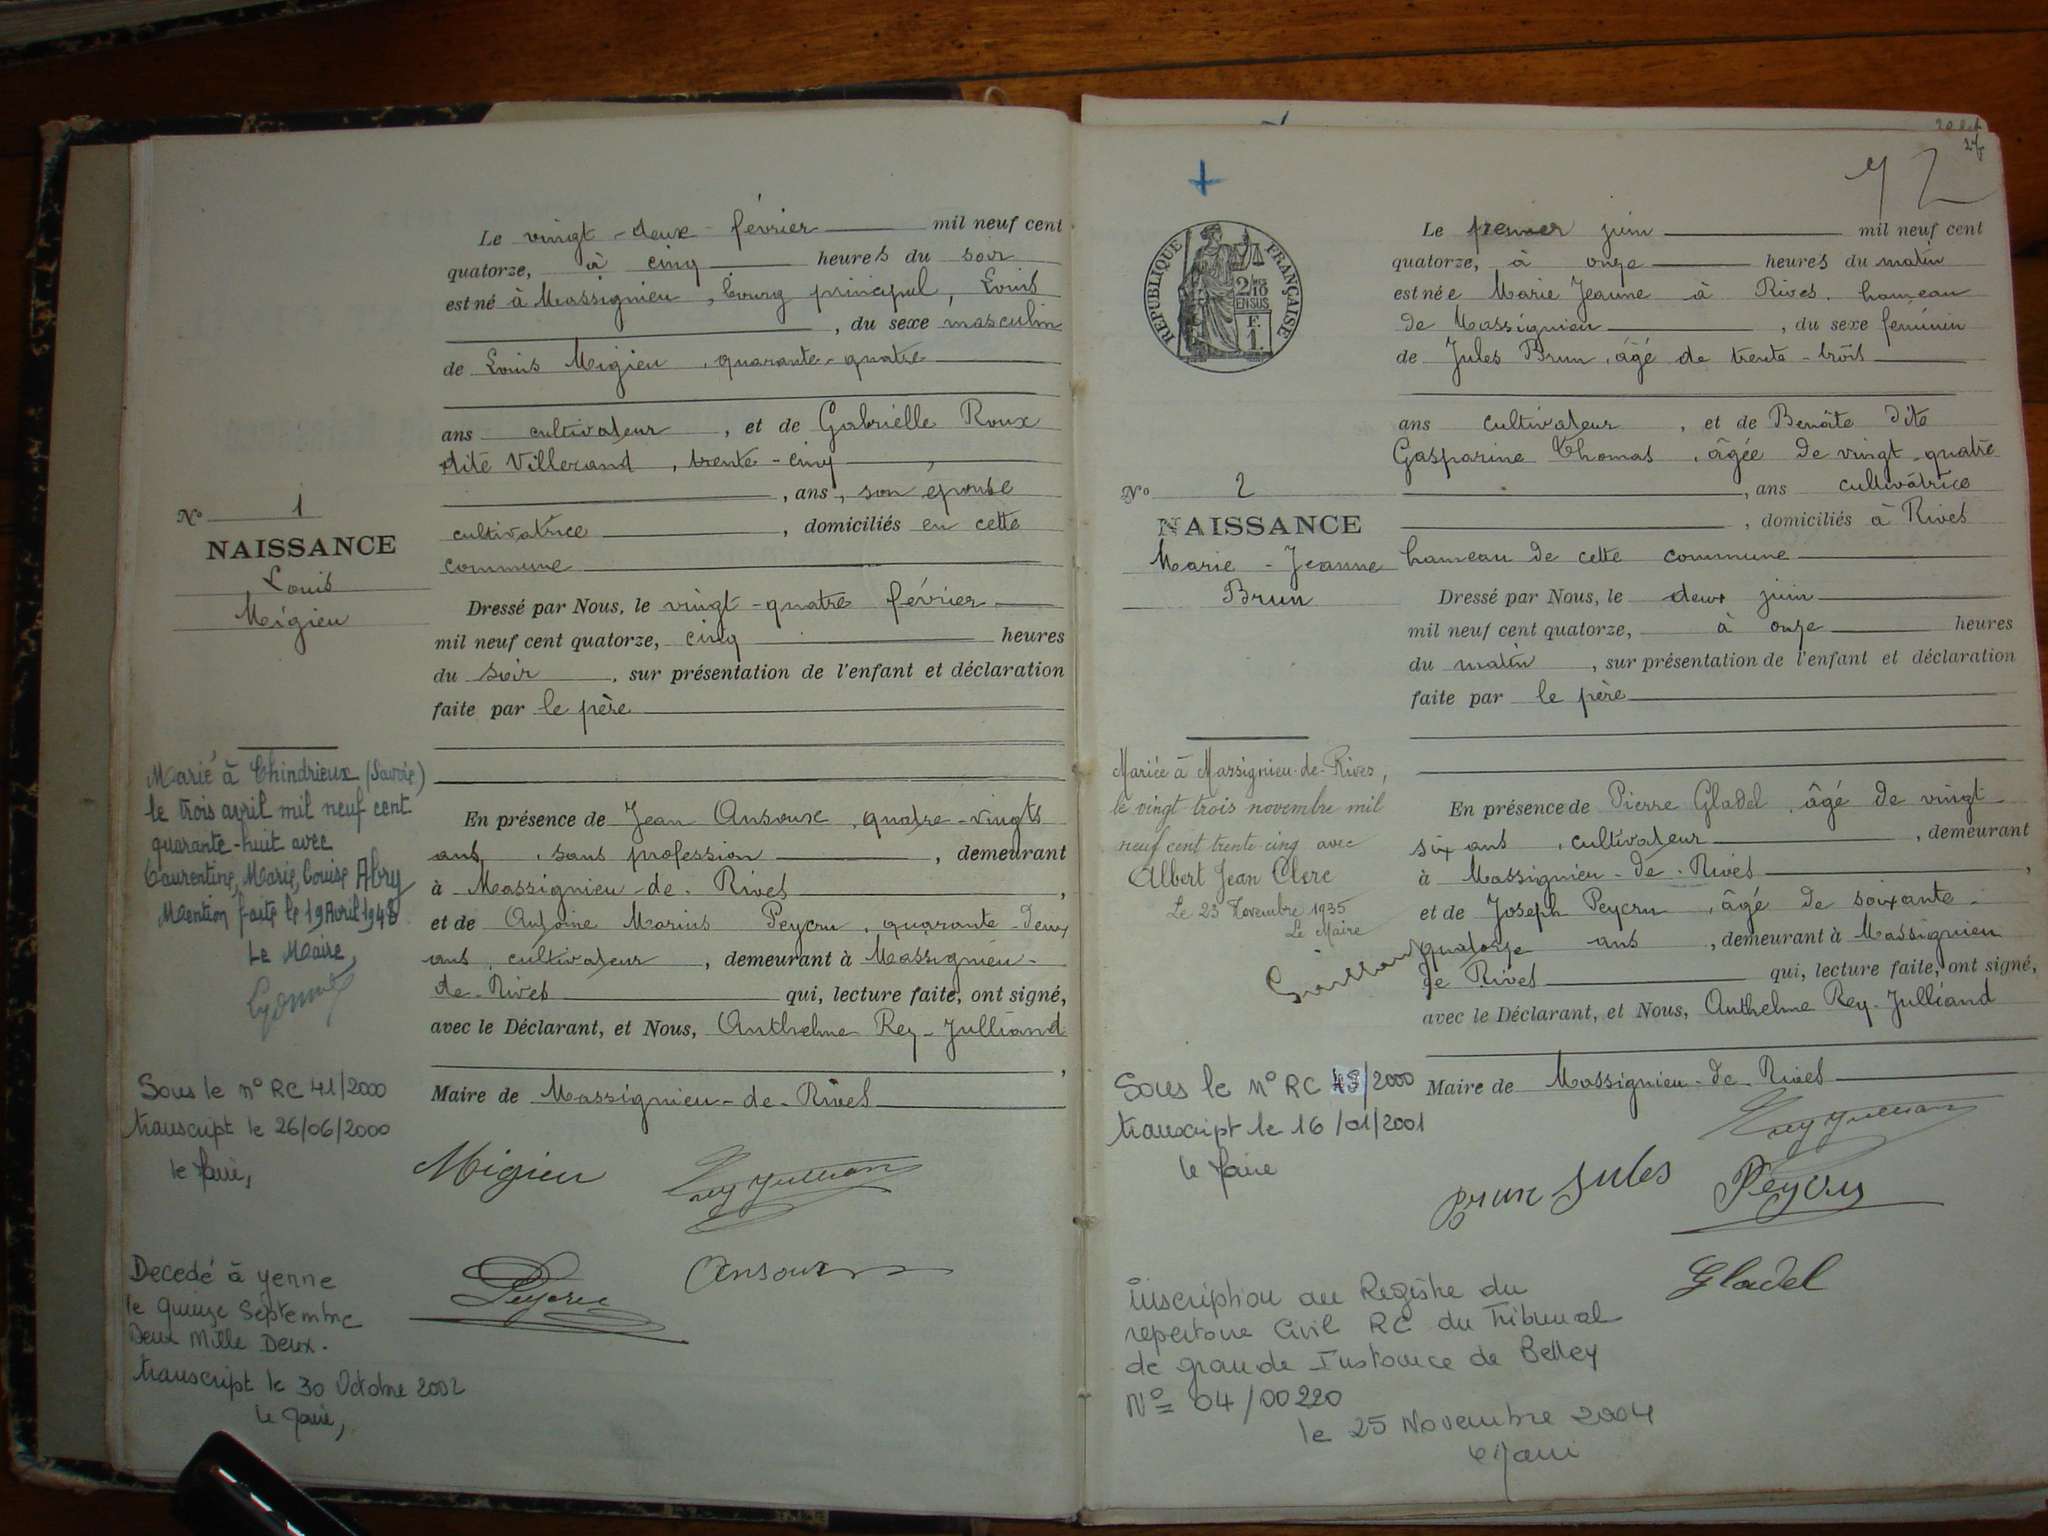 Le vingt-deux février mil neuf cent
quatorze, à cinq heures du soir
est né à Massignieu, bourg principal, Louis
, du sexe masculin
de Louis Migieu, quarante-quatre
ans cultivateur, et de Gabrielle Roux
dite Villerand, trente-cinq,
, ans, son épouse
cultivatrice, domiciliés en cette
commune
Dressé par Nous, le vingt-quatre février
mil neuf cent quatorze, cinq heures
du soir, sur présentation de l'enfant et déclaration
faite par le père
En présence de Jean Ansoux, quatre-vingts
ans, sans profession, demeurant
à Massignieu-de-Rives,
et de Antoine Marius Peycru, quarante-deux
ans, cultivateur, demeurant à Massignieu-
de-Rives qui, lecture faite, ont signé,
avec le Déclarant, et Nous, Anthelme Rey-Julliand
,
Maire de Massignieu-de-Rives
Migieu
Rey Julliand
Peycru
Ansoux
No 1
NAISSANCE
Louis
Migieu
Marié à Chindrieux (Savoie)
le trois avril mil neuf cent
quarante-huit avec
Laurentine, Marie, Louise Abry
Mention faite le 19 Avril 1948
Le Maire,
Sous le n° RC 41/2000
transcript le 26/06/2000
le Maire,
Decedé à yenne
le quinze Septembre
Deux Mille Deux.
transcript le 30 Octobre 2002
le Maire,
2
RÉPUBLIQUE FRANÇAISE
2/10
EN SUS
F.
1.
Le premier juin mil neuf cent
quatorze, à onze heures du matin
est née Marie Jeanne à Rives, hameau
de Massignieu, du sexe féminin
de Jules Brun, âgé de trente-trois
ans cultivateur, et de Benoîte dite
Gasparine Thomas, âgée de vingt-quatre
, ans cultivatrice
, domiciliés à Rives
hameau de cette commune
Dressé par Nous, le deux juin
mil neuf cent quatorze, à onze heures
du matin, sur présentation de l'enfant et déclaration
faite par le père
En présence de Pierre Gladel, âgé de vingt
six ans, cultivateur, demeurant
à Massignieu-de-Rives,
et de Joseph Peycru, âgé de soixante-
quatorze ans, demeurant à Massignieu
de Rives qui, lecture faite, ont signé,
avec le Déclarant, et Nous, Anthelme Rey-Julliand
Maire de Massignieu-de-Rives
Rey Julliand
Brun Jules
Peycru
Gladel
No 2
NAISSANCE
Marie-Jeanne
Brun
Mariée à Massignieu-de-Rives,
le vingt trois novembre mil
neuf cent trente-cinq avec
Albert Jean Clerc
Le 23 Novembre 1935
Le Maire
Sous le n° RC 43/2000
transcript le 16/01/2001
le Maire
inscription au Registre du
repertoire Civil RC du Tribunal
de grande Instance de Belley
N° 04/00220
le 25 Novembre 2004
le Maire